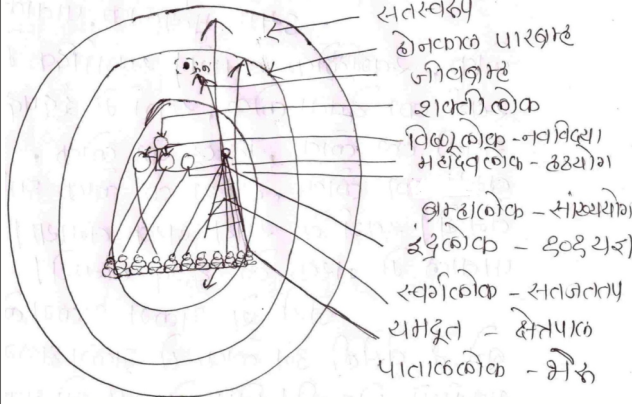 सतस्वरूप
होनकाळ पारब्रम्ह
जीवब्रम्ह
शक्तीलोक
विष्णूलोक - नवविद्या
महादेवलोक - हठयोग
ब्रम्हालोक - सांख्ययोग
इंद्रलोक - १०१ यज्ञ
स्वर्गलोक - सतजततप
यमदूत = क्षेत्रपाळ
पाताळलोक - भैरू